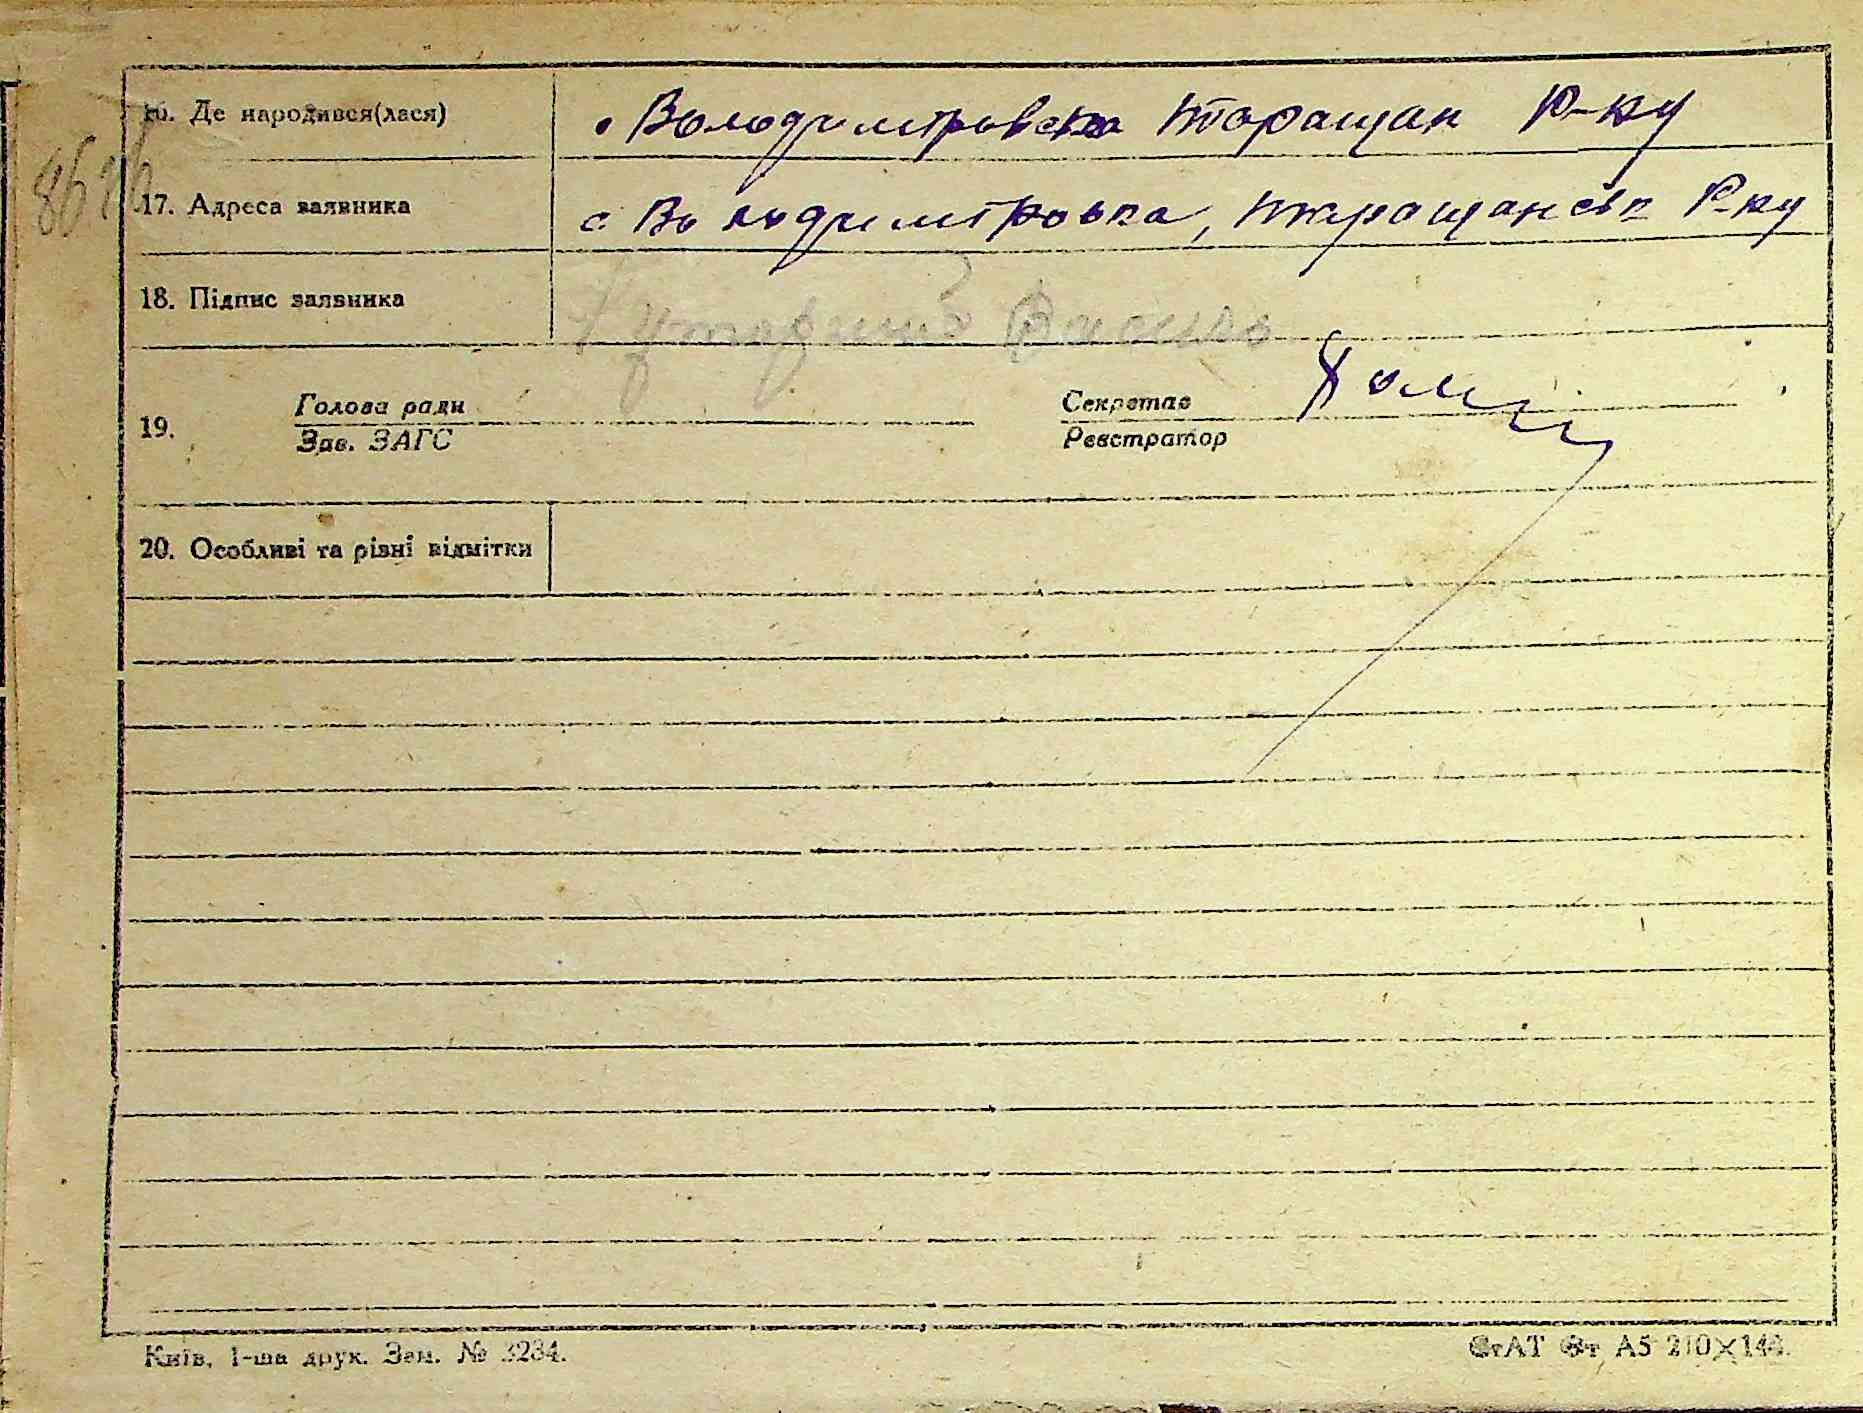 16. Де народився(лася) с Володимировка Таращан Р-ку
17. Адреса заявника с. Володимировка, Таращанськ Р-ку
18. Підпис заявника Василь
19. Голова ради Секретар
Зав. ЗАГС Реєстратор
20. Особливі та різні відмітки
Київ, 1-ша друк. Зам. № 3234.
СтАТ Фт А5 210×148.